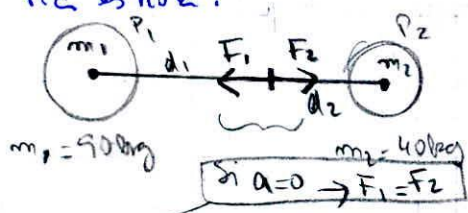 m₁ P₁ d₁ F₁ F₂ d₂ m₂ P₂
m₁ = 90kg m₂ = 40kg
Si a=0 → F₁ = F₂